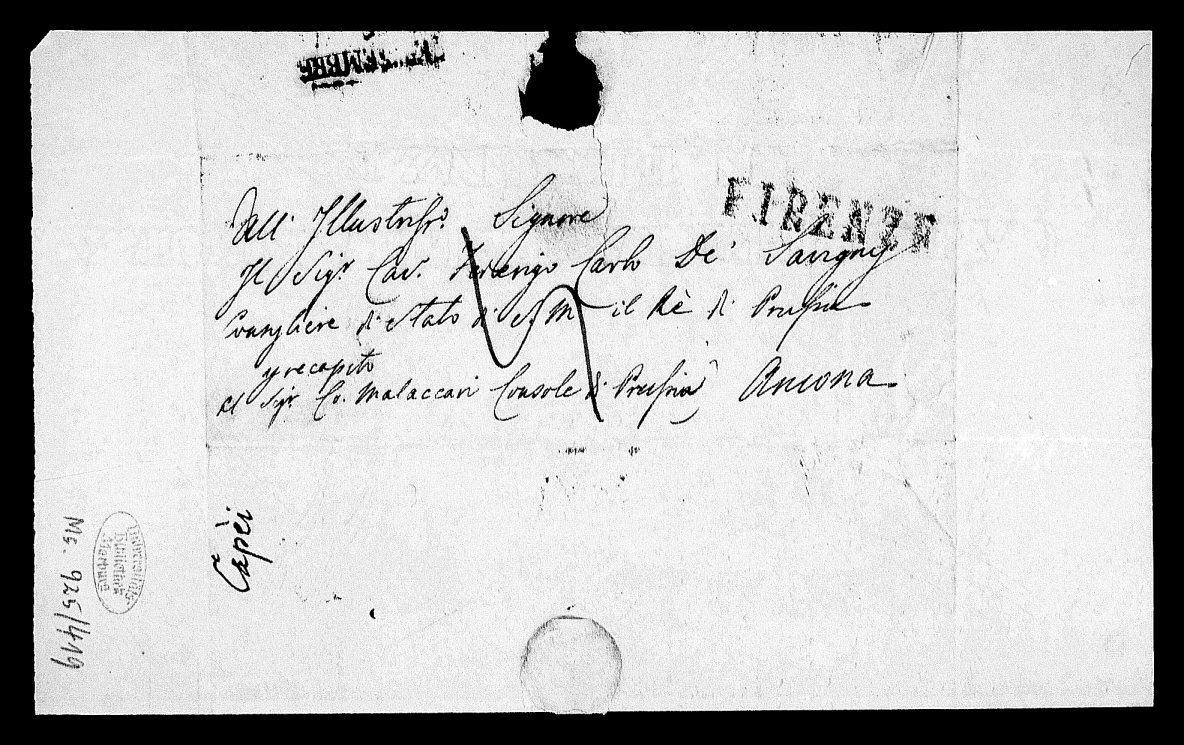 FIRENZE
All' Illustriss.o Signore
Il Sig.r Cav. Federigo Carlo De' Savigny
Consigliere di Stato di S. M. il Rè di Prussia
p recapito
al Sig.r Co. Malaccari Console di Prussia Ancona
Capèi
Universitäts
Bibliothek
Marburg
Ms. 925/419